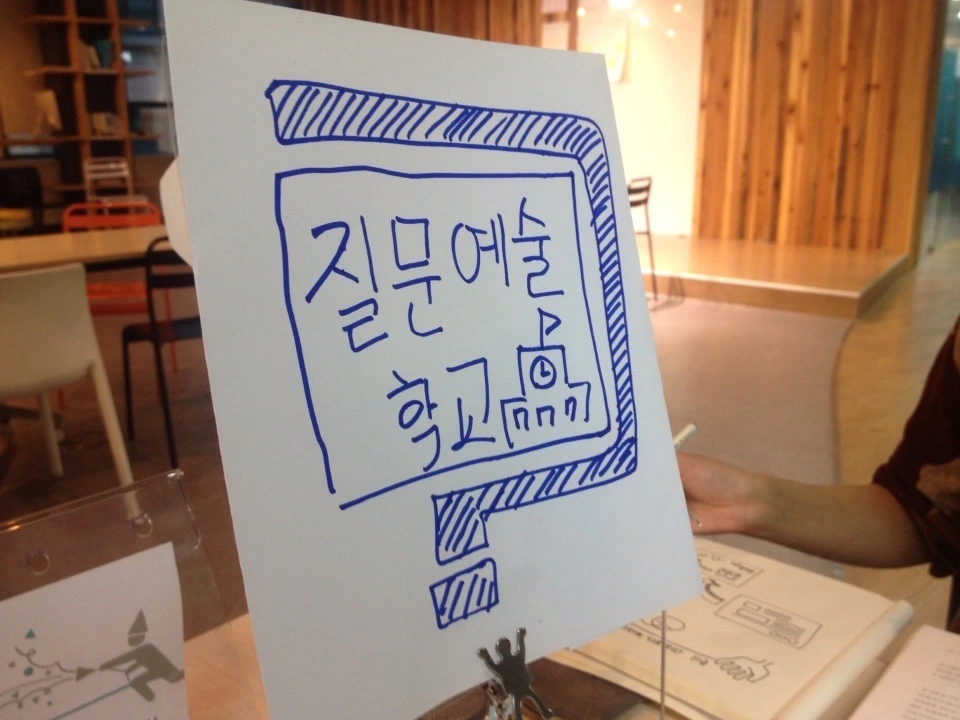 질문예술
학교